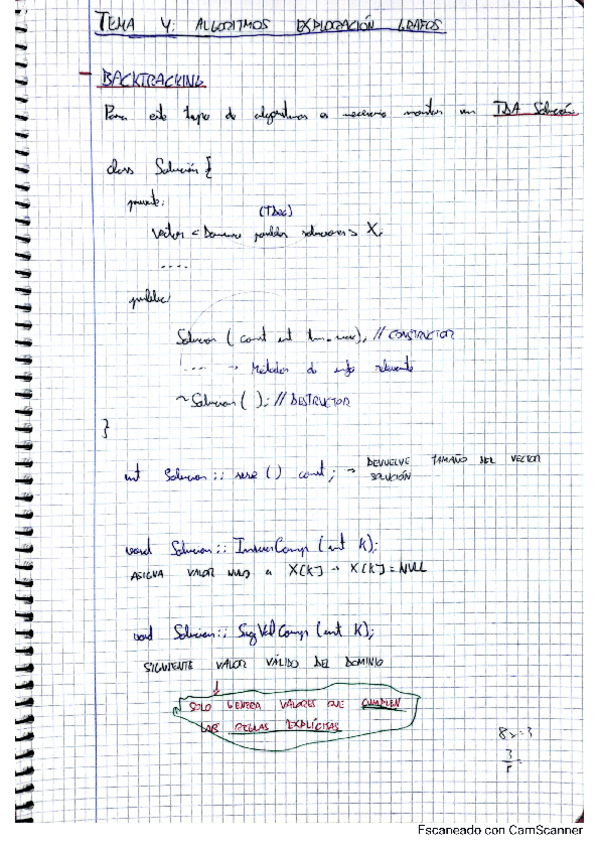 TEMA 4: ALGORITMOS EXPLORACIÓN GRAFOS
BACKTRACKING
Para este tipo de algoritmos es necesario montar un TDA Solución
class Solución {
private:
(TDoc)
vector < Dominio posibles soluciones > X;
....
public:
Solucion ( const int tam_max); // CONSTRUCTOR
.... → Métodos de info relevante
~Solucion ( ); // DESTRUCTOR
}
int Solucion :: size () const; → DEVUELVE TAMAÑO DEL VECTOR
SOLUCIÓN
void Solucion :: IniciarComp (int K);
ASIGNA VALOR NULO a X[K] → X[K] = NULL
void Solucion :: SigValComp (int K);
SIGUIENTE VALOR VÁLIDO DEL DOMINIO
SOLO GENERA VALORES QUE CUMPLEN
LAS REGLAS EXPLÍCITAS
8x=3
3
Escaneado con CamScanner